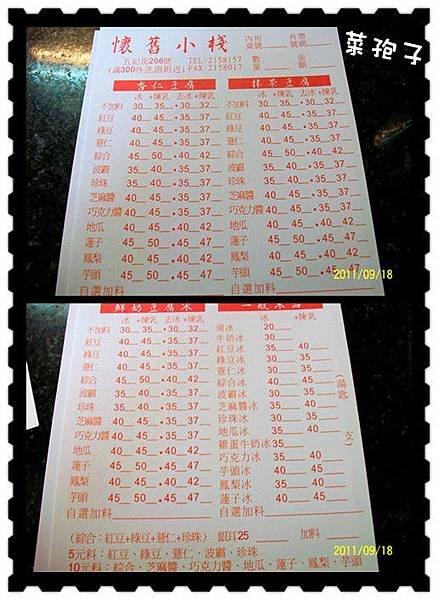 菜孢子
懷舊小棧
內用桌號
外帶號碼
五妃街206號 TEL:2158157
(滿300外送,限附近) FAX:2158017
數量
金額
杏仁豆腐
冰 +煉乳 去冰 +煉乳
不加料 30 35 30 32
紅豆 35 40 35 37
綠豆 35 40 35 37
薏仁 35 40 35 37
綜合 45 50 40 42
波霸 35 40 35 37
珍珠 35 40 35 37
芝麻醬 40 45 35 37
巧克力醬 40 45 35 37
地瓜 40 45 40 42
蓮子 45 50 45 47
鳳梨 40 45 40 42
芋頭 45 50 45 47
自選加料
抹茶豆腐
冰 +煉乳 去冰 +煉乳
不加料 30 35 30 32
紅豆 35 40 35 37
綠豆 35 40 35 37
薏仁 35 40 35 37
綜合 45 50 40 42
波霸 35 40 35 37
珍珠 35 40 35 37
芝麻醬 40 45 35 37
巧克力醬 40 45 35 37
地瓜 40 45 40 42
蓮子 45 50 45 47
鳳梨 40 45 40 42
芋頭 45 50 45 47
自選加料
2011/09/18
鮮奶豆腐冰
冰 +煉乳 去冰 +煉乳
不加料 30 35 30 32
紅豆 35 40 35 37
綠豆 35 40 35 37
薏仁 35 40 35 37
綜合 45 50 40 42
波霸 35 40 35 37
珍珠 35 40 35 37
芝麻醬 40 45 35 37
巧克力醬 40 45 35 37
地瓜 40 45 40 42
蓮子 45 50 45 47
鳳梨 40 45 40 42
芋頭 45 50 45 47
自選加料
冰 +煉乳
清冰 20
牛奶冰 30
紅豆冰 35 40
綠豆冰 30 35
薏仁冰 30 35
綜合冰 40 45
波霸冰 30 35
芝麻醬冰 35 40
珍珠冰 30 35
地瓜冰 35 40
雞蛋牛奶冰 35
巧克力冰 35 40
芋頭冰 40 45
鳳梨冰 35 40
蓮子冰 40 45
自選加料
(湯匙 支)
(綜合:紅豆+綠豆+薏仁+珍珠) 銀耳25 加料
5元料:紅豆、綠豆、薏仁、波霸、珍珠
10元料:綜合、芝麻醬、巧克力醬、地瓜、蓮子、鳳梨、芋頭
2011/09/18